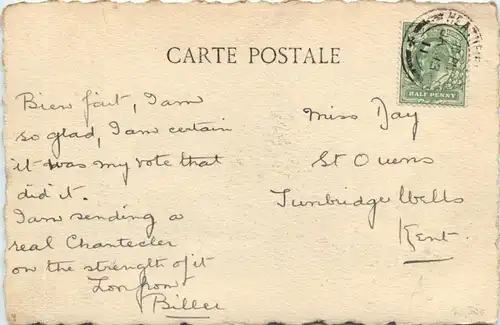 CARTE POSTALE
HALF PENNY
Bien fait, I am
so glad, I am certain
it was my vote that
did it.
I am sending a
real Chantecler
on the strength of it
Billee
Miss Day
St Owens
Tunbridge Wells
Kent.